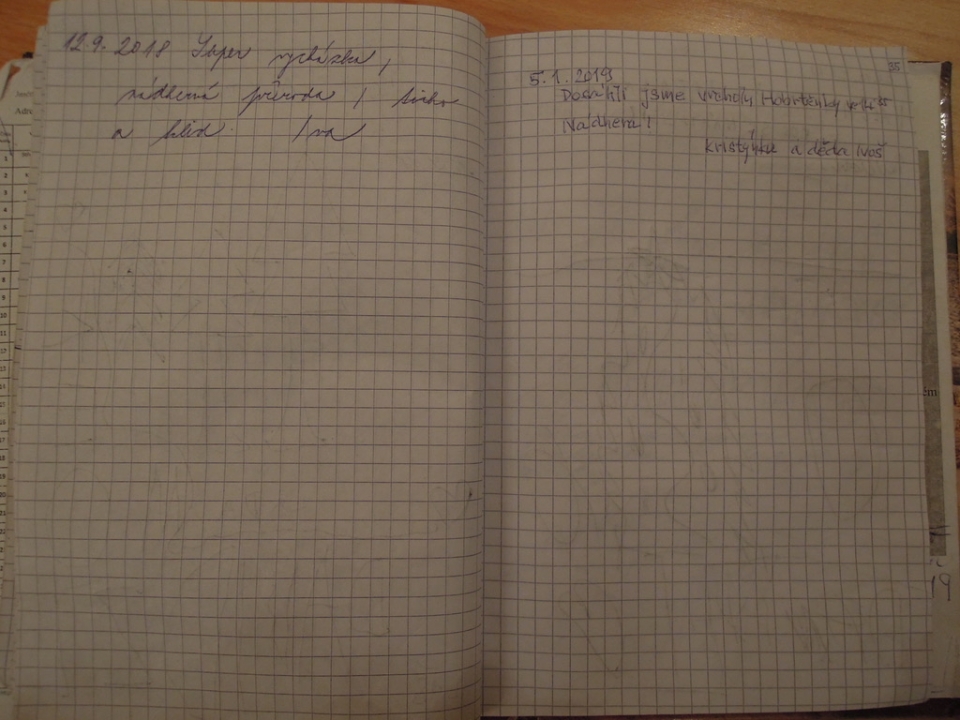 12.9.2018 Super vycházka,
nádherná příroda, ticho
a klid. Iva
35
5.1.2019
Dosáhli jsme vrcholu
Nádhera!
Kristýnka a děda Ivoš
ém
19